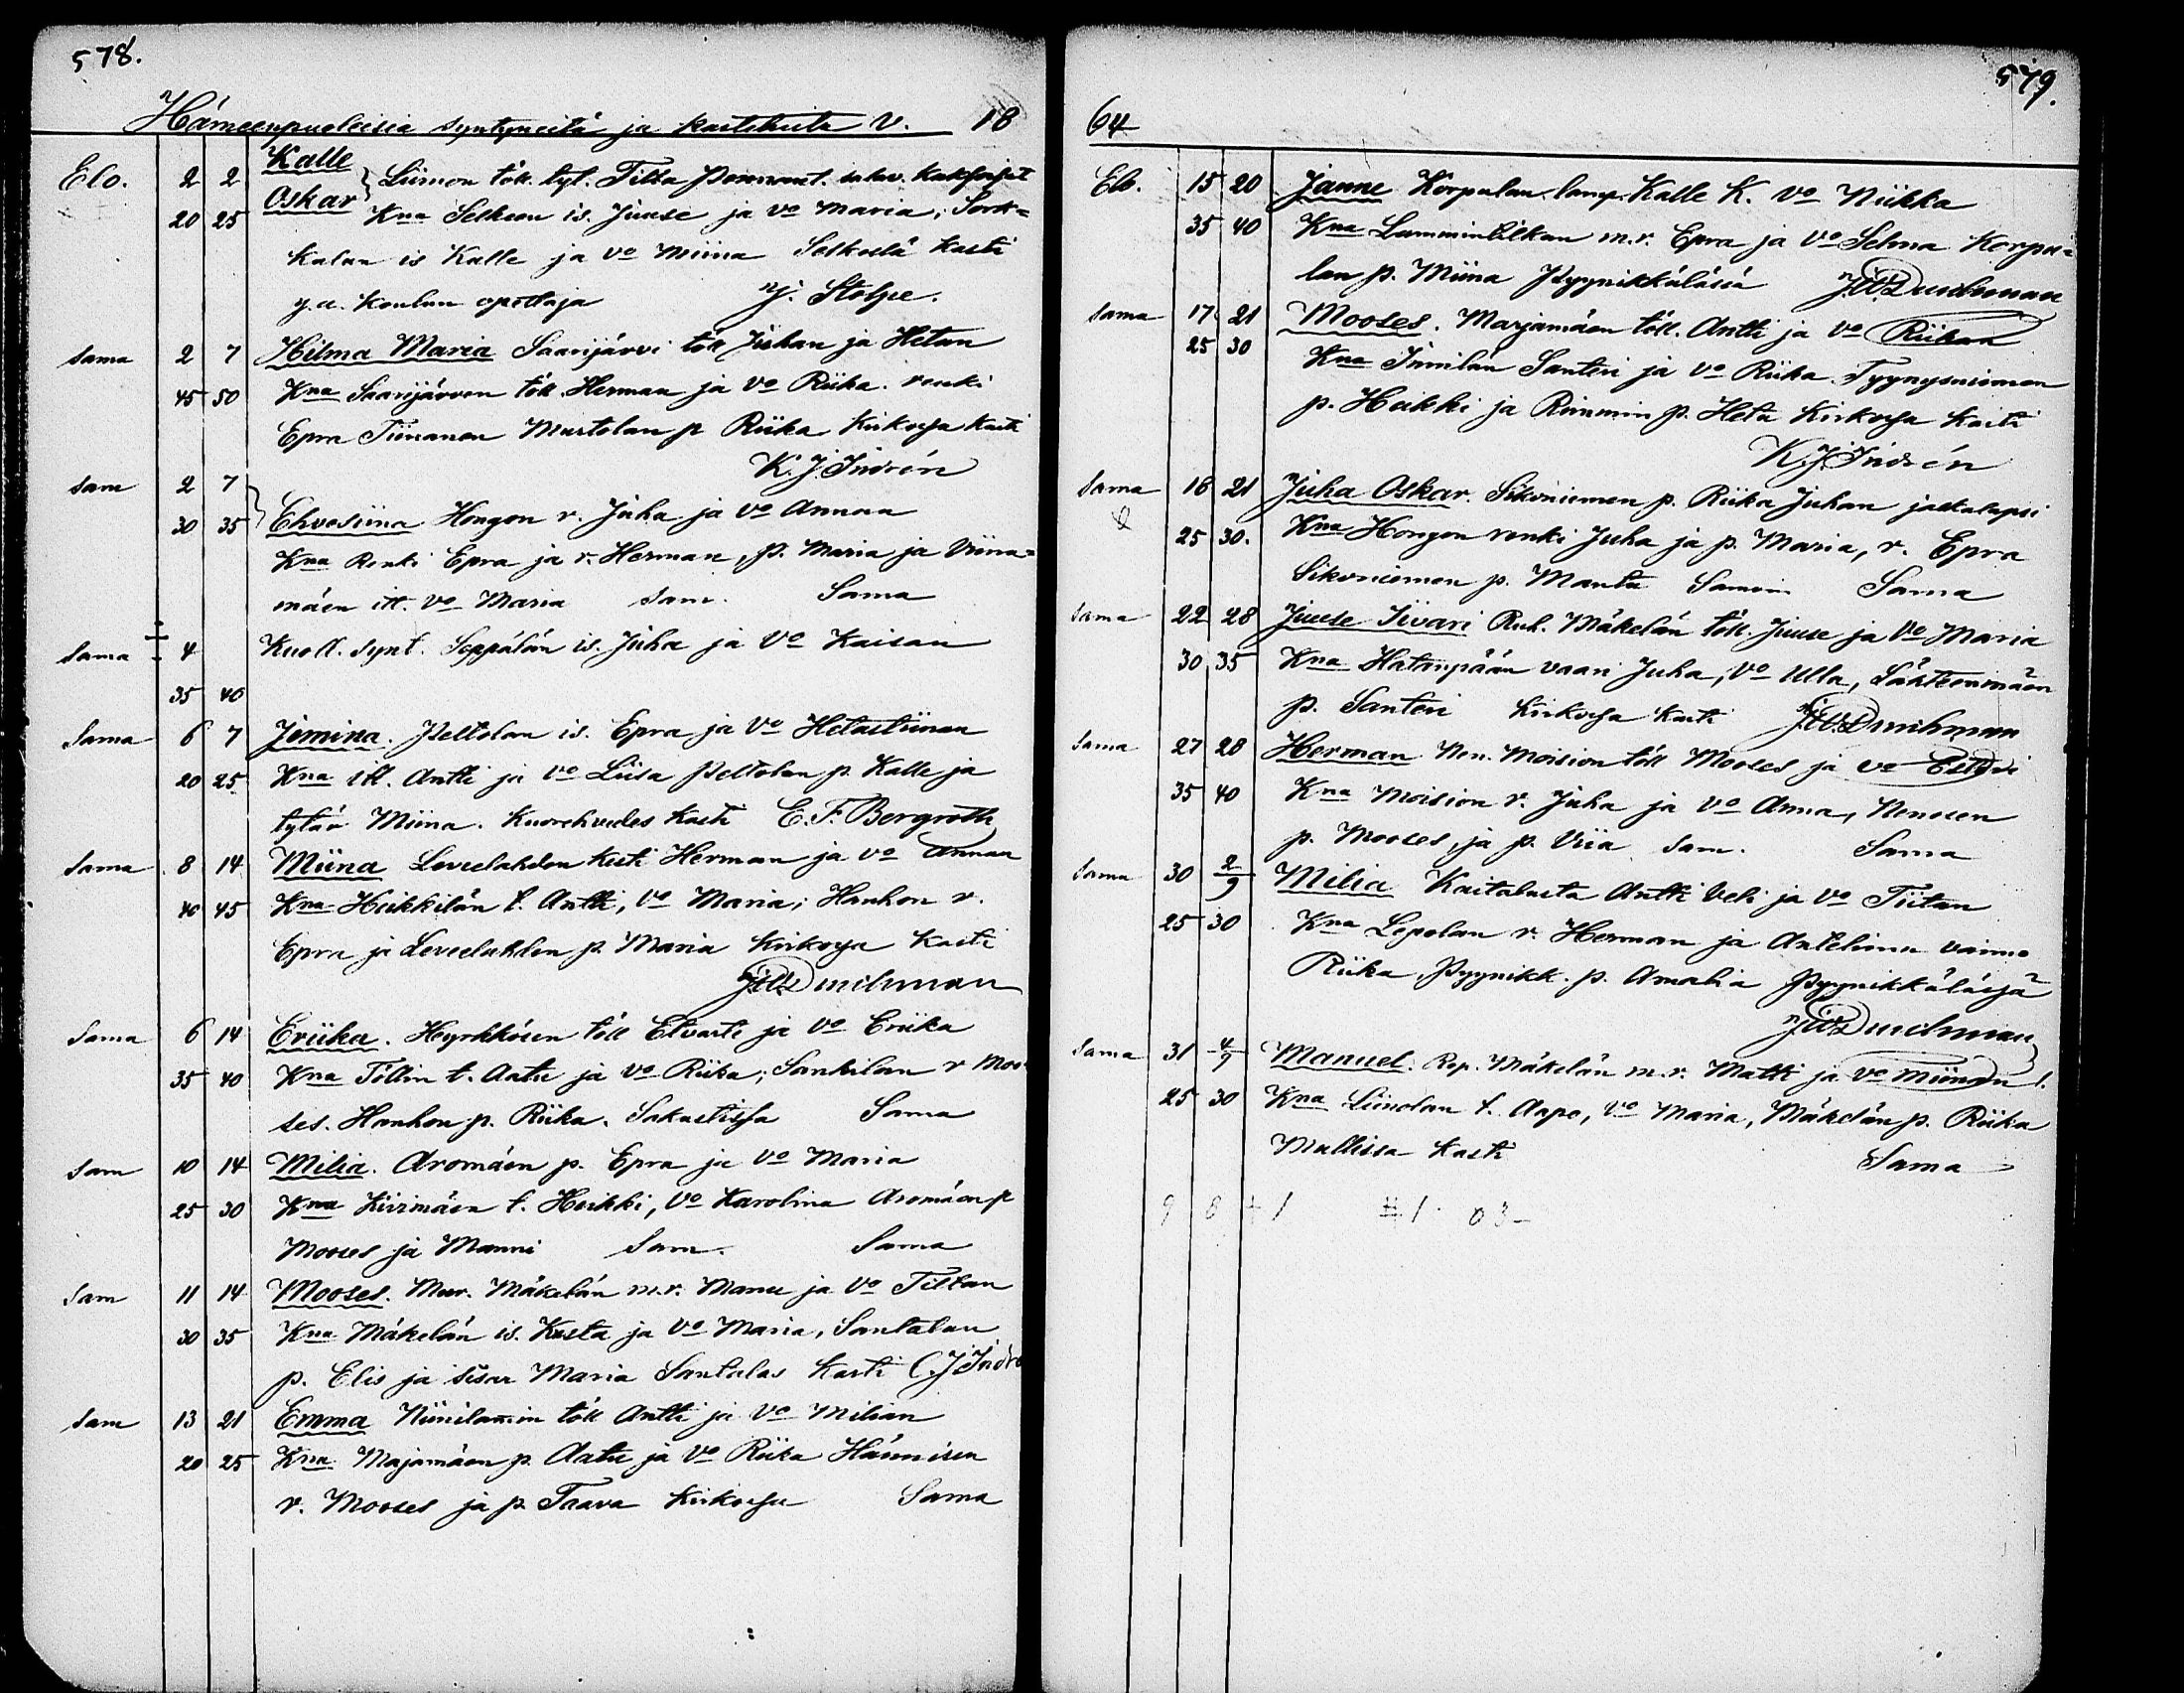 578.
Hämeenpuoleisia syntyneitä ja kastetuita V. 18
Kalle
Elo. 2 2 Liimon töll. tyt. Tilta
Oskar
20 25 Kna Selkeen is. Juuse ja Vo Maria, Sork=
kalan is Kalle ja Vo Miina Selkeelä kasti
y.a. koulun opettaja J. Stolpe.
Sama 2 7 Hilma Maria Saarijärvi töll Juhan ja Hetan
45 50 Kna Saarijärven töll. Herman ja Vo Riika. renki
Epra Tiinanen Murtolan p Riika Kirkossa kasti
K. J. Indrén
Sam 2 7
30 35 Ehvesiina Hongon r. Juha ja Vo Annan
Kna Renki Epra ja r. Herman, p. Maria ja Viina=
mäen itt. Vo Maria Sam. Sama
Sama 4 Kuoll. synt. Seppälän is. Juha ja Vo Kaisan
35 40
Sama 6 7 Jemina. Peltolan is. Epra ja Vo Hetastiinan
20 25 Kna itt. Antti ja Vo Liisa Peltolan p. Kalle ja
tytär Miina. Kuorehvedes kasti E. F. Bergroth
Sama 8 14 Miina Leveelahden kesti Herman ja Vo Annan
40 45 Kna Heikkilän t. Antti, Vo Maria; Hanhon r.
Epra ja Leveelahden p. Maria Kirkossa kasti
Sama 6 14 Eriika. Hyrkkösen töll Elvarti ja Vo Eriika
35 40 Kna Töllin t. Aatu ja Vo Riika; Sankilan r Moo=
ses. Hanhon p. Riika. Sakastissa Sama
Sam 10 14 Milia. Aromäen p. Epra ja Vo Maria
25 30 Kna Kivimäen t. Heikki, Vo Karolina Aromäen p
Mooses ja Manni Sam. Sama
Sam 11 14 Mooses. Mur. Mäkelän m.r. Manu ja Vo Tiltan
30 35 Kna Mäkelän is. Kusta ja Vo Maria, Santalan
p. Elis ja sisar Maria Santalas kasti
Sam 13 21 Emma Niinilamin töll Antti ja Vo Milian
20 25 Kna Majamäen p. Aatu ja Vo Riika Hännisen
r. Mooses ja p. Taava Kirkossa Sama
579.
64
Elo. 15 20 Janne Korpulan lamp. Kalle K. Vo Niikka
35 40 Kna Lamminlilkan m.r. Epra ja Vo Selma Korpu=
lan p. Miina Pyynikkäläsiä
Sama 17 21 Mooses. Marjamäen töll. Antti ja Vo Riikan
25 30 Kna Innilän Santeri ja Vo Riika Tyynysniemen
p. Heikki ja Rimmin p. Heta Kirkossa kasti
K. J. Indrén
Sama 18 21 Juha Oskar. Sikoniemen p. Riika Juhan jaskalapsi
25 30. Kna Hongon renki Juha ja p. Maria, r. Epra
Sikoniemen p. Manta Samoin Sama
Sama 22 28 Juuse Iivari Ruh. Mäkelän töll. Juuse ja Vo Maria
30 35 Kna Hatanpään vaari Juha, Vo Ulla, Lähteenmäen
p. Santeri Kirkossa kasti
Sama 27 28 Herman Nen. Moision töll Mooses ja Vo Esteri
35 40 Kna Moision r. Juha ja Vo Anna, Nenosen
p. Mooses, ja p. Viia Sam. Sama
Sama 30 2/9 Milia Kaitalasta Antti Veli ja Vo Tiitan
25 30 Kna Lepolan r. Herman ja Antelinin vaimo
Riika, Pyynikk. p. Amalia Pyynikkäläsjä
Sama 31 4/9 Manuel. Rop. Mäkelän m.r. Matti ja Vo Miinan
25 30 Kna Liinolan t. Aapo, Vo Maria, Mäkelän p. Riika
Mallissa kasti Sama
9 8 + 1 # 1. 03-